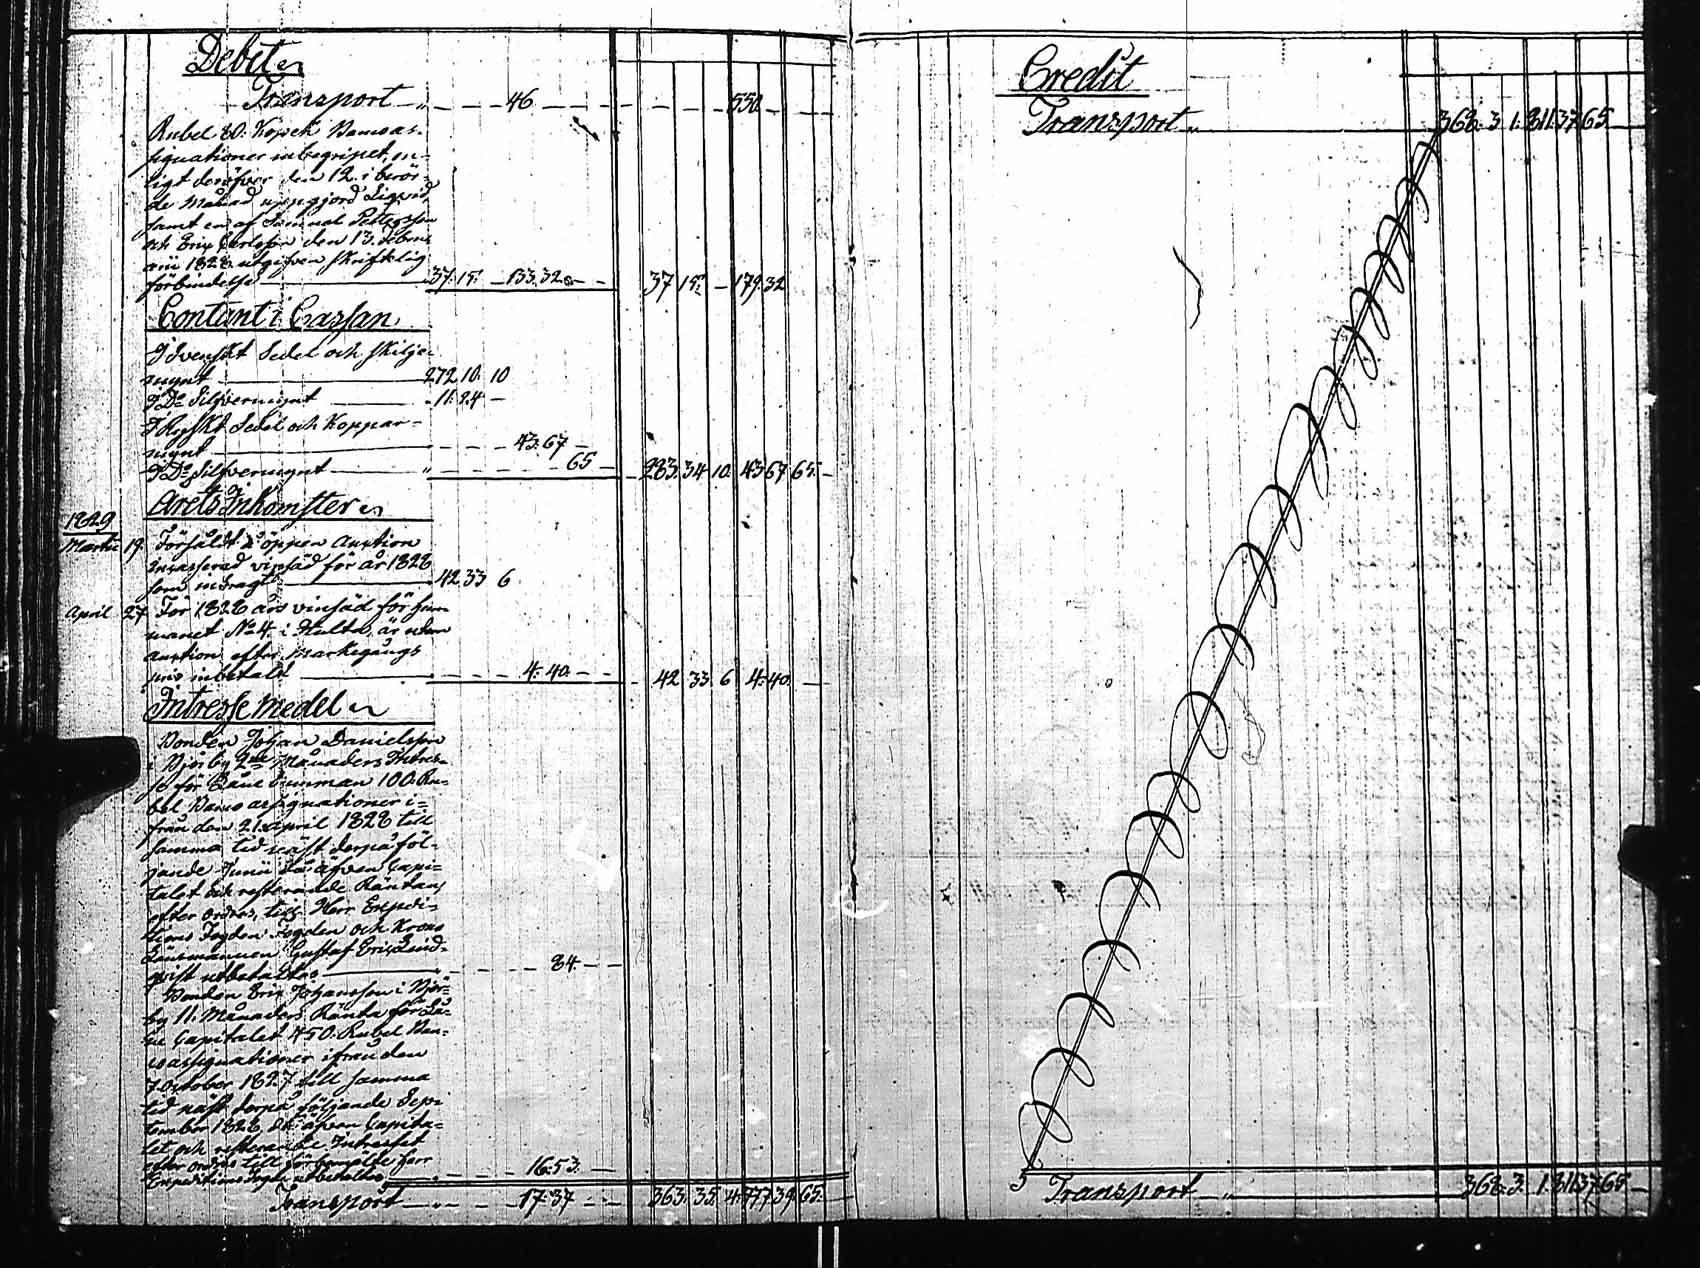 Debet
Transport 46 550.
Rubel 80. Kopek Bancoas-
signationer inbegripet, en-
ligt deröfver den 12. i berör-
de Månad uppgjord Liqvid,
samt en af Samuel Pettersson
och Eric Carlsson den 13. Febru-
arii 1828 utgifven skriftelig
förbindelse 37. 15. 133. 32. 37 15. 179. 32
Contant i Cassan
I Svenskt Sedel och skilje-
mynt 272 10. 10
I Do Silfvermynt 11. 24
I Ryskt Sedel och Koppar-
mynt 43. 67
I Do Silfvermynt 65 283. 34 10. 43 67 65.
Årets Inkomster
1829
Martii 19. Försåldt å öppen Auction
som inbragt 42 33 6
April 27 För 1828 års vinsäd för hem-
manet No 4. i Hulta, är utom
Auction efter Markegångs
pris inbetalt 4. 40. 42. 33. 6 4. 40.
Intresse Medel
Bonden Johan Danielsson
i Björby 2ne Månaders Intres-
se för Låne Summan 100 Ru-
bel Banco assignationer i-
från den 21 April 1828 till
samma tid näst derpå föl-
jande Junii då äfven Capi-
talet och resterande Räntan,
efter ordres, till Herr Expedi-
tions Fogden Fogden och Krono
Länsmannen Gustaf Eric Lind-
qvist utbetaltes 84.
Bonden Eric Johansson i Björ-
by 11. Månaders Ränta för Lå-
ne Capitalet 450. Rubel Ban-
co assignationer ifrån den
7 October 1827 till samma
tid näst derpå följande Sep-
tember 1828, då äfven Capita-
let och resterande Intresset
efter ordres till förbemälde Herr
Expeditions Fogde utbetaltes 16. 53.
Transport 17. 37 363. 35. 4. 777 39. 65.
Credit
Transport 368. 3 1. 811. 37. 65
Transport 368. 3. 1. 811. 37. 65